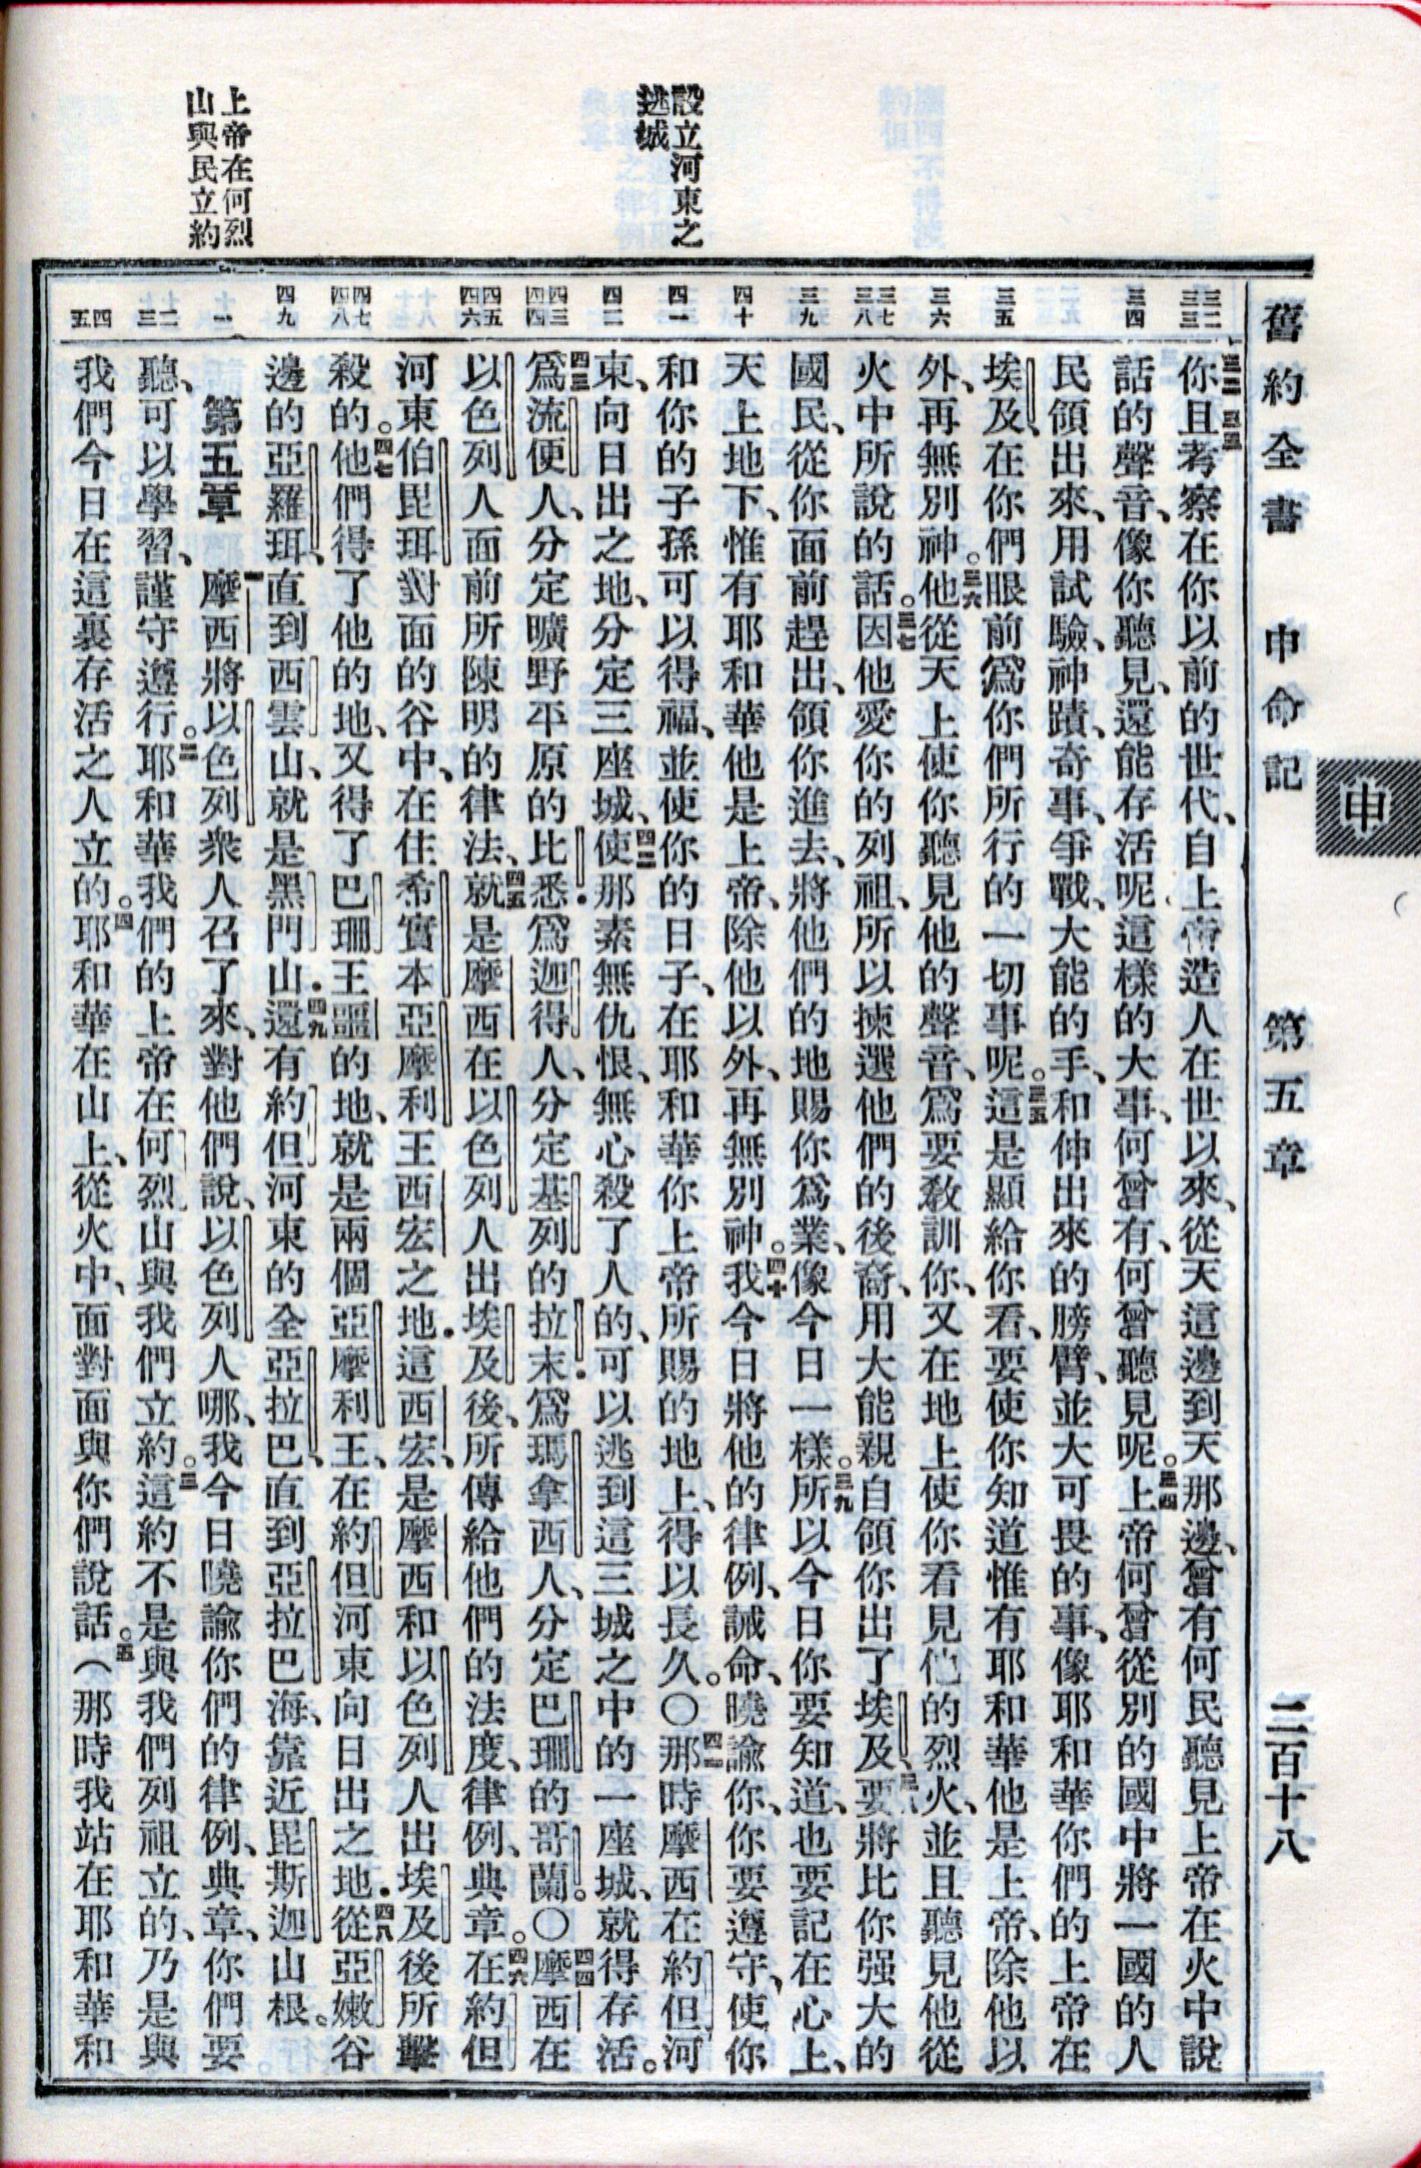 舊約全書 申命記 第五章 二百十八
申
設立河東之
逃城
上帝在何烈
山與民立約
三二 三三
三四
三五
三六
三七 三八
三九
四十
四一
四二
四三 四四
四五 四六
四七 四八
四九
一
二 三
四 五
三二 三三 你且考察在你以前的世代、自上帝造人在世以來、從天這邊到天那邊、曾有何民聽見上帝在火中說
話的聲音、像你聽見、還能存活呢、這樣的大事、何曾有、何曾聽見呢。三四上帝何曾從別的國中將一國的人
民領出來、用試驗、神蹟、奇事、爭戰、大能的手、和伸出來的膀臂、並大可畏的事、像耶和華你們的上帝在
埃及、在你們眼前爲你們所行的一切事呢。三五這是顯給你看、要使你知道惟有耶和華他是上帝、除他以
外、再無別神。三六他從天上使你聽見他的聲音、爲要敎訓你、又在地上使你看見他的烈火、並且聽見他從
火中所說的話。三七因他愛你的列祖、所以揀選他們的後裔、用大能親自領你出了埃及、三八要將比你强大的
國民、從你面前趕出、領你進去、將他們的地賜你爲業、像今日一樣。三九所以今日你要知道、也要記在心上、
天上地下、惟有耶和華他是上帝、除他以外、再無別神。四十我今日將他的律例、誡命、曉諭你、你要遵守、使你
和你的子孫可以得福、並使你的日子、在耶和華你上帝所賜的地上、得以長久。〇四一那時摩西在約但河
東、向日出之地、分定三座城、四二使那素無仇恨、無心殺了人的、可以逃到這三城之中的一座城、就得存活。
四三爲流便人、分定曠野平原的比悉．爲迦得人、分定基列的拉末．爲瑪拿西人、分定巴珊的哥蘭。〇四四摩西在
以色列人面前所陳明的律法、四五就是摩西在以色列人出埃及後、所傳給他們的法度、律例、典章。四六在約但
河東伯毘珥對面的谷中、在住希實本亞摩利王西宏之地．這西宏、是摩西和以色列人出埃及後所擊
殺的。四七他們得了他的地、又得了巴珊王噩的地、就是兩個亞摩利王、在約但河東向日出之地．四八從亞嫩谷
邊的亞羅珥、直到西雲山、就是黑門山．四九還有約但河東的全亞拉巴、直到亞拉巴海、靠近毘斯迦山根。
第五章 一摩西將以色列衆人召了來、對他們說、以色列人哪、我今日曉諭你們的律例、典章、你們要
聽、可以學習、謹守遵行。二耶和華我們的上帝在何烈山與我們立約。三這約不是與我們列祖立的、乃是與
我們今日在這裏存活之人立的。四耶和華在山上、從火中、面對面與你們說話。五（那時我站在耶和華和